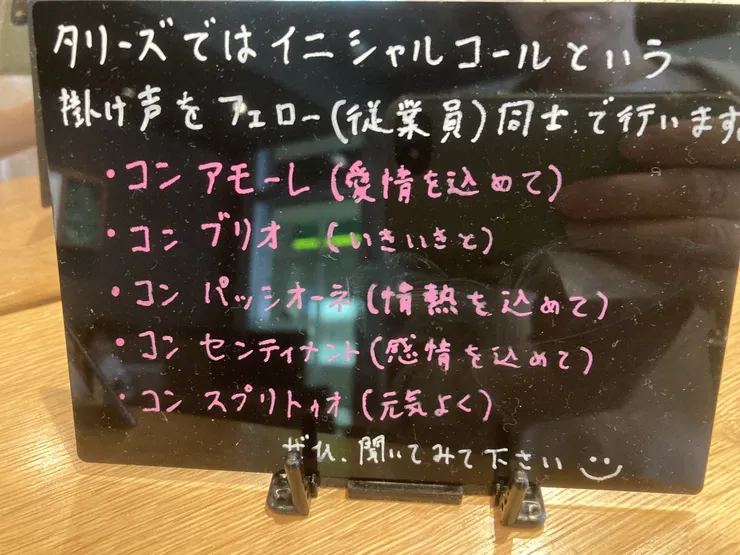 タリーズではイニシャルコールという
掛け声をフェロー(従業員)同士で行います。
・コン アモーレ(愛情を込めて)
・コン ブリオ (いきいきと)
・コン パッシオーネ(情熱を込めて)
・コン センティナント(感情を込めて)
・コン スプリトゥオ(元気よく)
ぜひ、聞いてみて下さい